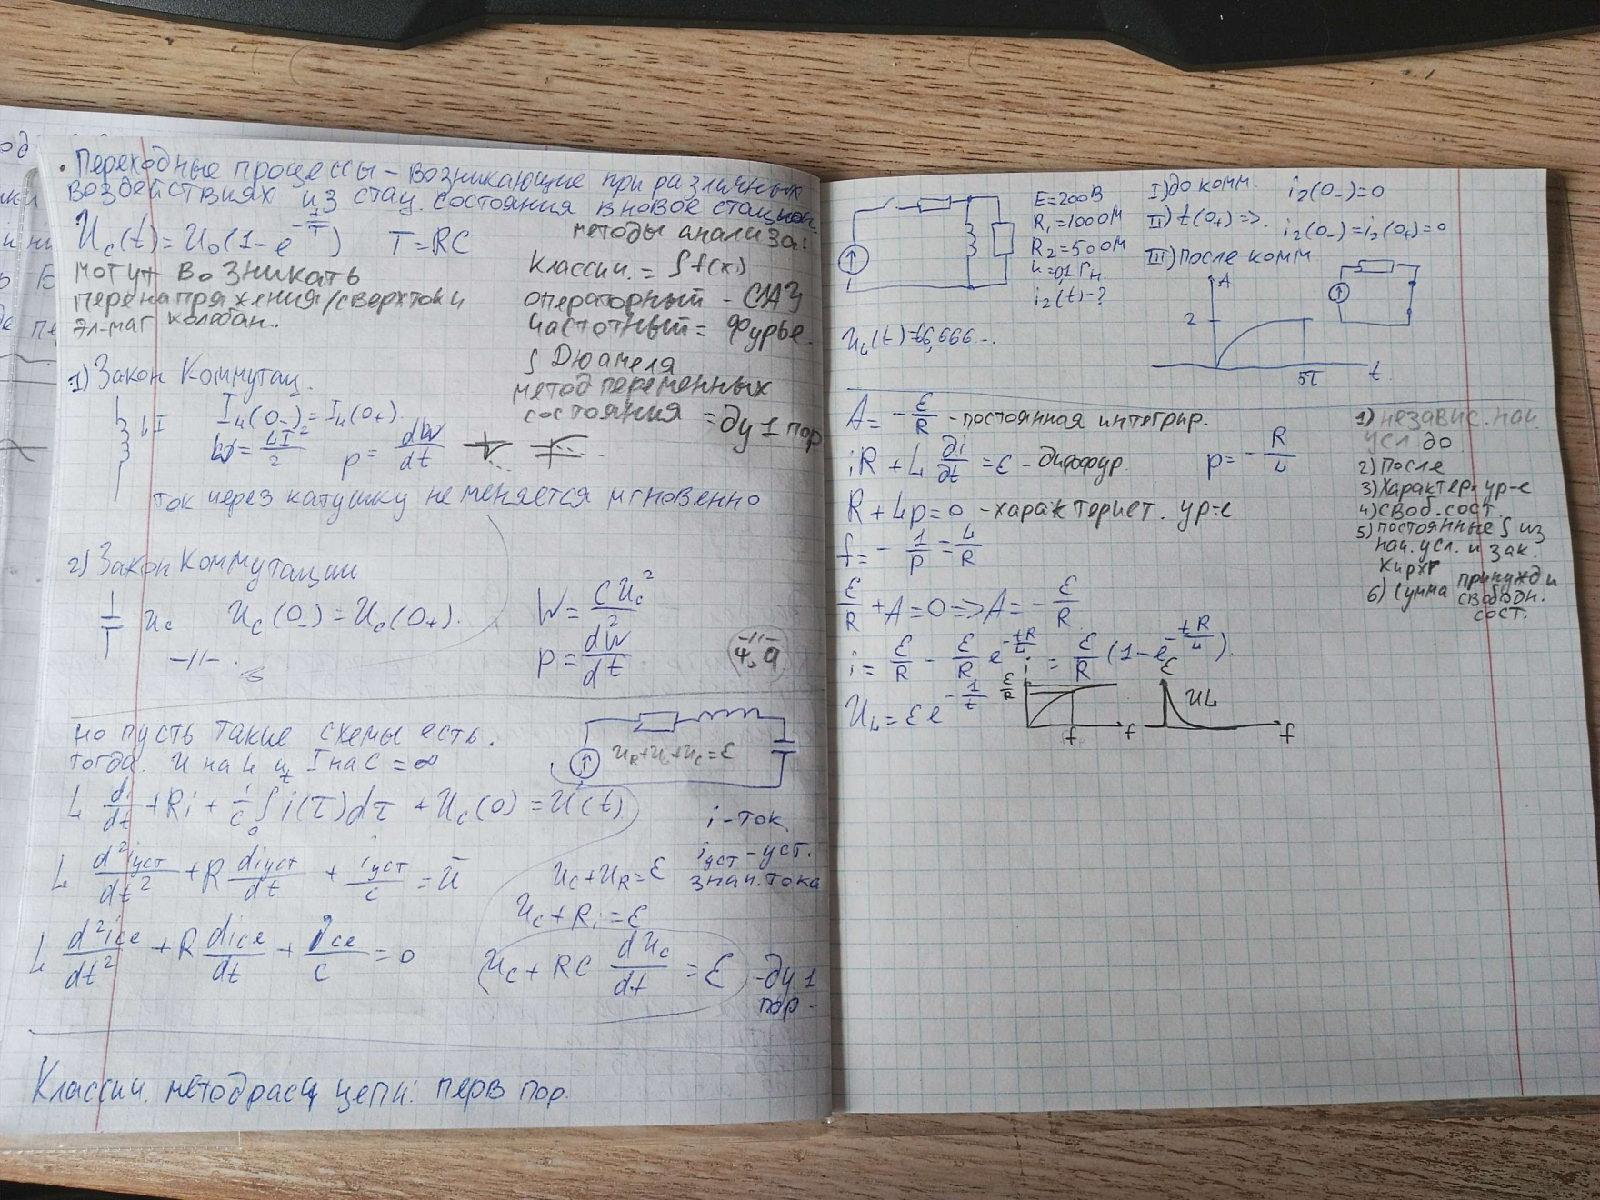 • Переходные процессы – возникающие при различных
воздействиях из стац. состояния в новое стацион.
U_c(t) = U_0(1 - e^{-\frac{t}{T}}) T = RC
могут возникать
перенапряжения/сверхтоки
эл-маг колебан.
методы анализа:
Классич. = ∫f(x)
операторный – СЛАУ
частотный = Фурье.
∫ Дюамеля
метод переменных
состояния = ду 1 пор
1) Закон Коммутац.
I_L(0_-) = I_L(0_+).
W = \frac{LI^2}{2} p = \frac{dW}{dt}
ток через катушку не меняется мгновенно
2) Закон Коммутации
U_c U_c(0_-) = U_c(0_+).
–//– .
W = \frac{CU_c^2}{2}
p = \frac{dW}{dt}
–//–
но пусть такие схемы есть.
тогда U на L и I на C = ∞
U_R + U_L + U_C = ε
L \frac{di}{dt} + Ri + \frac{1}{C}∫_0 i(τ)dτ + U_c(0) = U(t)
i – ток
L \frac{d^2 i_{уст}}{dt^2} + R \frac{d i_{уст}}{dt} + \frac{i_{уст}}{C} = \bar{U}
i_{уст} – уст.
знач. тока
L \frac{d^2 i_{св}}{dt^2} + R \frac{d i_{св}}{dt} + \frac{i_{св}}{C} = 0
U_C + U_R = ε
U_C + Ri = ε
U_C + RC \frac{dU_C}{dt} = ε – ду 1
пор.
Классич. метод расч цепи: перв пор.
E = 200В
R_1 = 100ОМ
R_2 = 50ОМ
L = 0,1 Гн
i_2(t) – ?
I) до комм. i_2(0_-) = 0
II) t(0_+) => i_2(0_-) = i_2(0_+) = 0
III) После комм.
A
2
5T t
U_L(t) = 66,666...
A = - \frac{ε}{R} – постоянная интегрир.
iR + L \frac{∂i}{∂t} = ε – диффур. p = - \frac{R}{L}
R + Lp = 0 – характерист. ур-е
f = - \frac{1}{p} = \frac{L}{R}
\frac{ε}{R} + A = 0 => A = - \frac{ε}{R}
i = \frac{ε}{R} - \frac{ε}{R} e^{-\frac{tR}{L}} = \frac{ε}{R}(1 - e^{-\frac{tR}{L}}).
U_L = ε e^{-\frac{1}{t}}
i \frac{ε}{R} f f
ε U_L f
1) независ. нач.
усл. до
2) После
3) Характер. ур-е
4) Свод. сост.
5) постоянные ∫ из
нач. усл. и зак.
Кирхг
6) Сумма принужд и
свободн.
сост.